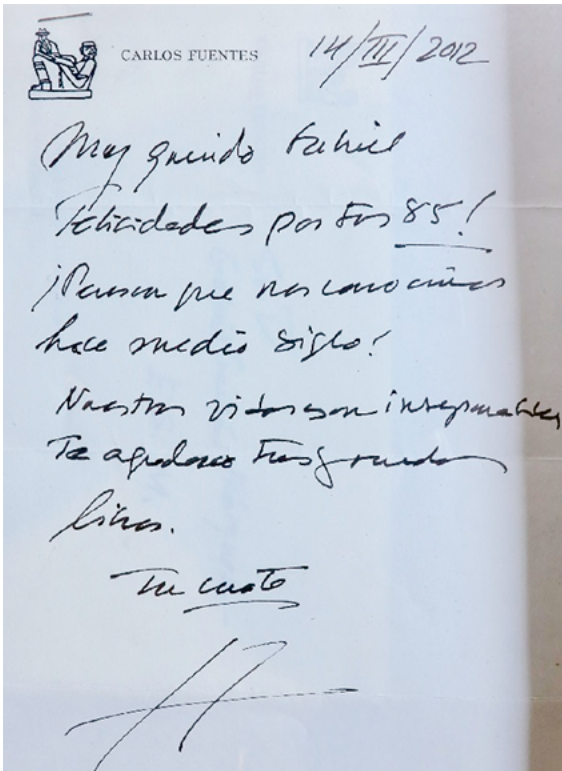 CARLOS FUENTES
14/III/2012
Muy querido Gabriel
Felicidades por tus 85!
¡Pensar que nos conocimos
hace medio siglo!
Nuestras vidas son inseparables
Te agradezco tus grandes
libros.
Tu cuate